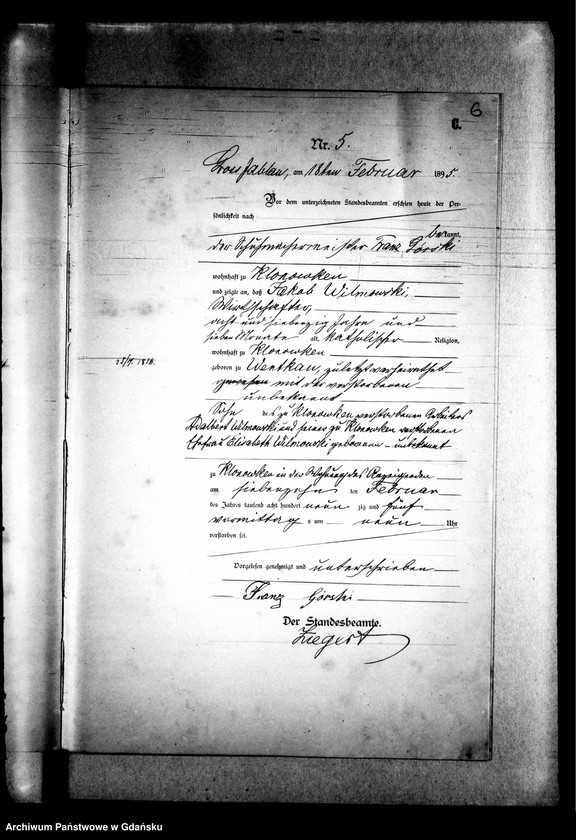 6
C.
Nr. 5.
Gross Jablau, am 18ten Februar 1895.
Vor dem unterzeichneten Standesbeamten erschien heute der Per-
sönlichkeit nach
bekannt,
der Schuhmachermeister Franz Górski
wohnhaft zu Klonowken
und zeigte an, daß Jakob Wilmowski,
Wirthschafter,
acht und siebenzig Jahre und
sieben Monate alt, katholischer Religion,
wohnhaft zu Klonowken
geboren zu Wentkau, zuletzt verheirathet
gewesen mit der verstorbenen
unbekannt
Sohn des zu Klonowken verstorbenen Arbeiters
Adalbert Wilmowski und seiner zu Klonowken verstorbenen
Ehefrau Elisabeth Wilmowski geborenen - unbekannt
zu Klonowken in der Wohnung des Anzeigenden
am siebenzehn ten Februar
des Jahres tausend acht hundert neun zig und fünf
vormittags um neun Uhr
verstorben sei.
Vorgelesen genehmigt und unterschrieben
Franz Górski
Der Standesbeamte.
Ziegert
Archiwum Państwowe w Gdańsku